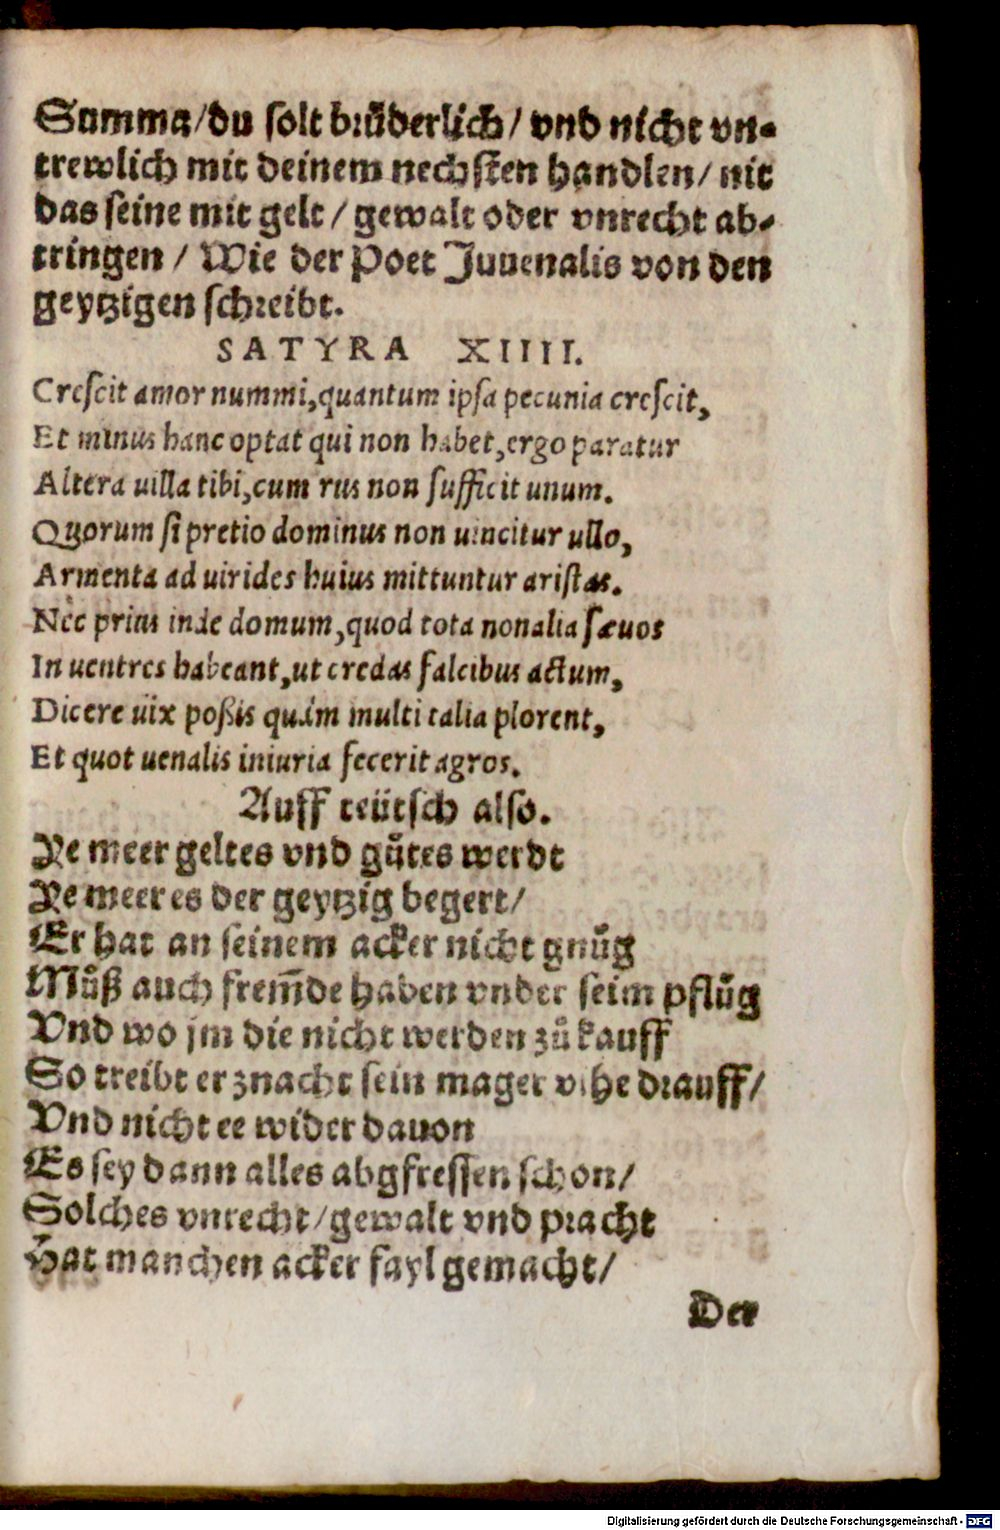 Summa/du solt brůderlich/ vnd nicht vn-
trewlich mit deinem nechsten handlen/ nit
das seine mit gelt / gewalt oder vnrecht ab-
tringen / Wie der Poet Juuenalis von den
geytzigen schreibt.
SATYRA XIIII.
Crescit amor nummi,quantum ipsa pecunia crescit,
Et minus hanc optat qui non habet,ergo paratur
Altera uilla tibi,cum rus non sufficit unum.
Quorum si pretio dominus non uincitur ullo,
Armenta ad uirides huius mittuntur aristas.
Nec prius inde domum,quod tota nonalia sæuos
In uentres habeant,ut credas falcibus actum,
Dicere uix poßis quám multi talia plorent,
Et quot uenalis iniuria fecerit agros.
Auff teütsch also.
Ye meer geltes vnd gůtes werdt
Ye meer es der geytzig begert/
Er hat an seinem acker nicht gnůg
Můß auch frem̃de haben vnder seim pflůg
Vnd wo jm die nicht werden zů kauff
So treibt er znacht sein mager vihe drauff/
Vnd nicht ee wider dauon
Es sey dann alles abgfressen schon/
Solches vnrecht/gewalt vnd pracht
Hat manchen acker fayl gemacht/
Der
Digitalisierung gefördert durch die Deutsche Forschungsgemeinschaft - DFG